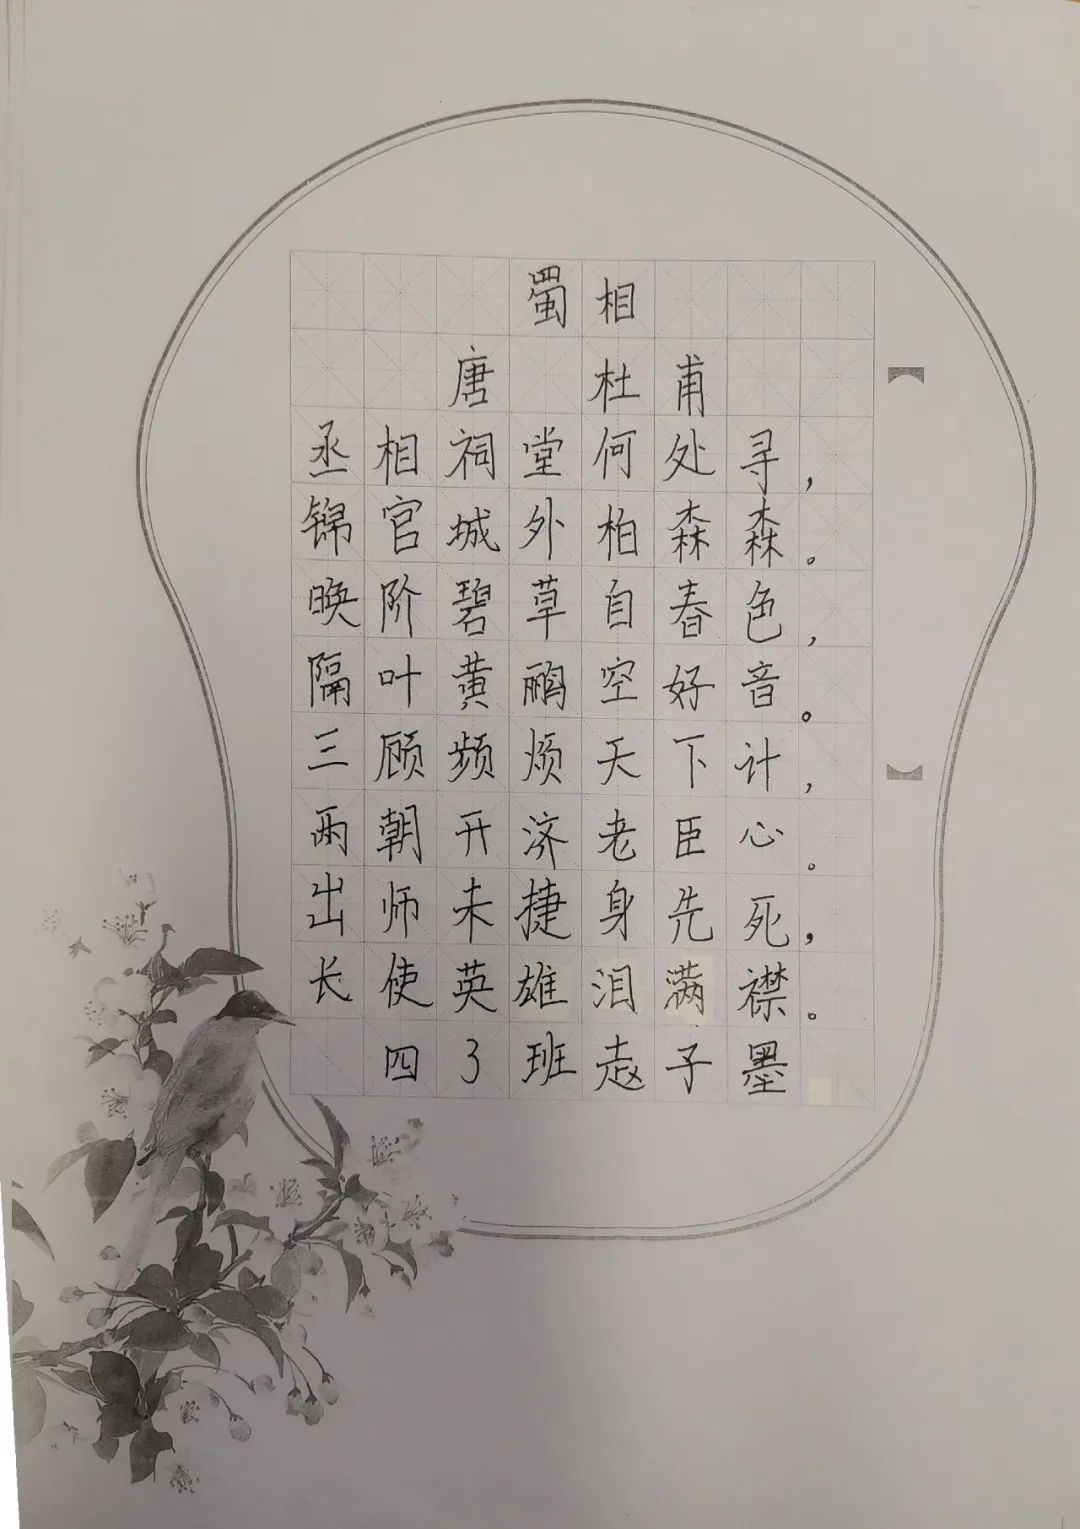 蜀相
唐 杜甫
丞相祠堂何处寻，
锦官城外柏森森。
映阶碧草自春色，
隔叶黄鹂空好音。
三顾频烦天下计，
两朝开济老臣心。
出师未捷身先死，
长使英雄泪满襟。
四3班赵子墨
【
】